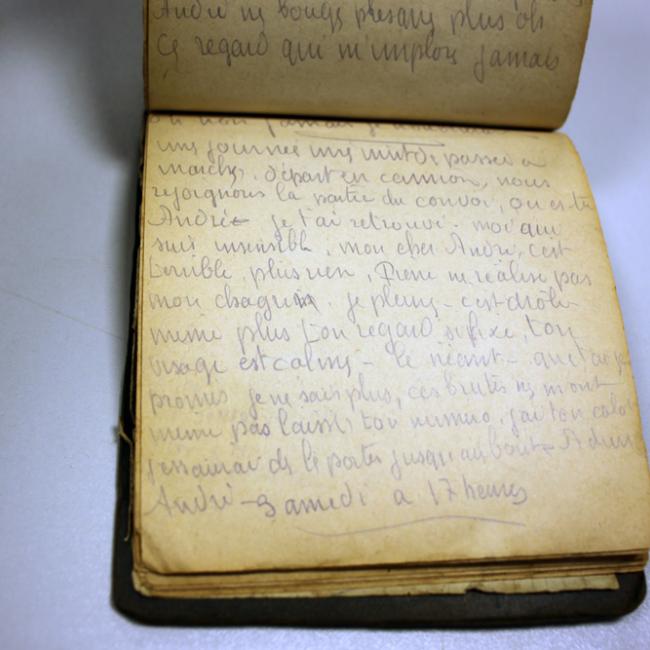 André ne bouge presque plus oh
ce regard qui m'implore jamais
une journée une nuit de passée a
marche, départ en camion, nous
rejoignons la partie du convoi, ou es tu
André je t'ai retrouvé - moi qui
suis insensible, mon cher André, c'est
terrible plus rien, Pierre ne réalise pas
mon chagrin je pleure - c'est drôle
meme plus ton regard si fixe, ton
visage est calme - le néant - que t'ai je
promis je ne sais plus, ces brutes ne m'ont
meme pas laissé ton numero, j'ai ton calo
j'essaierai de le porter jusqu'au bout - Adieu
André - Samedi a 17 heures